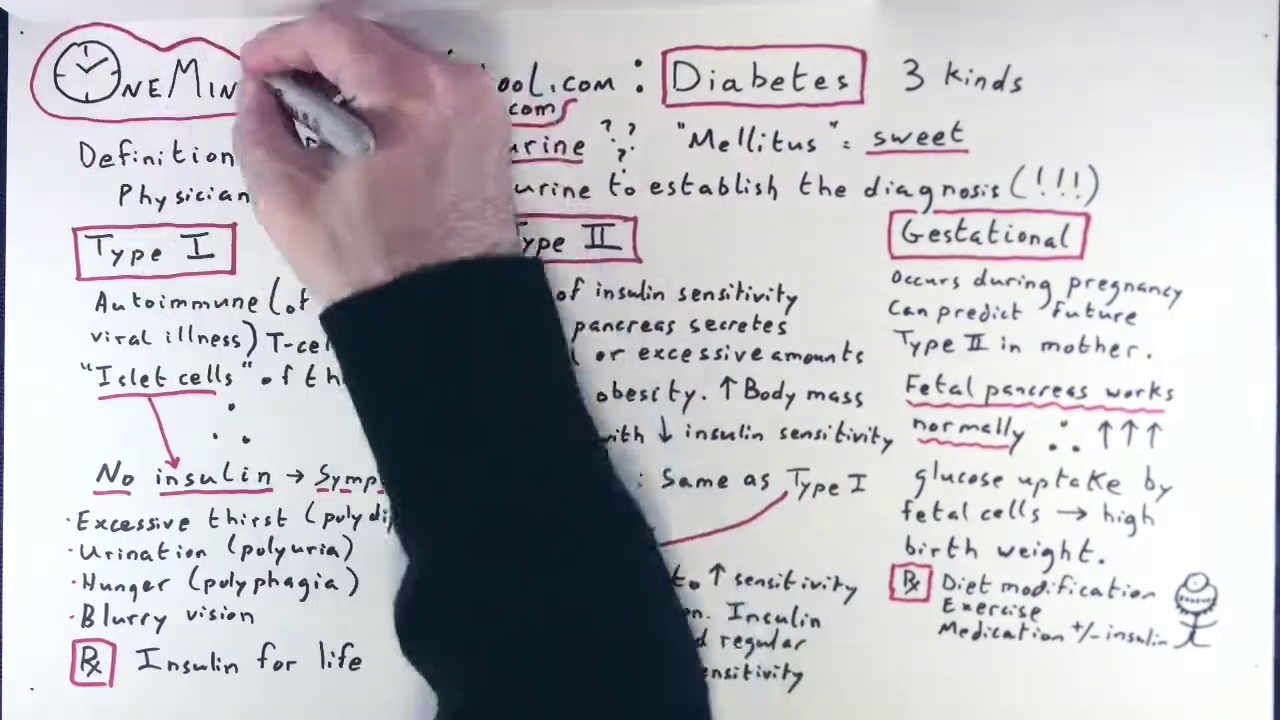 ONEMIN ool.com : Diabetes 3 kinds
com
Definition urine ??? "Mellitus" = sweet
Physician urine to establish the diagnosis (!!!)
Type I
Autoimmune (of
viral illness) T-cel
"Islet cells" of th
∴
No insulin → Symp
·Excessive thirst (polydip
·Urination (polyuria)
·Hunger (polyphagia)
·Blurry vision
Rx Insulin for life
Type II
of insulin sensitivity
pancreas secretes
or excessive amounts
obesity. ↑ Body mass
with ↓ insulin sensitivity
: Same as Type I
to ↑ sensitivity
n. Inculin
d regular
nsitivity
Gestational
Occurs during pregnancy
Can predict future
Type II in mother.
Fetal pancreas works
normally ∴ ↑↑↑
glucose uptake by
fetal cells → high
birth weight.
Rx Diet modification
Exercise
Medication +/- insulin